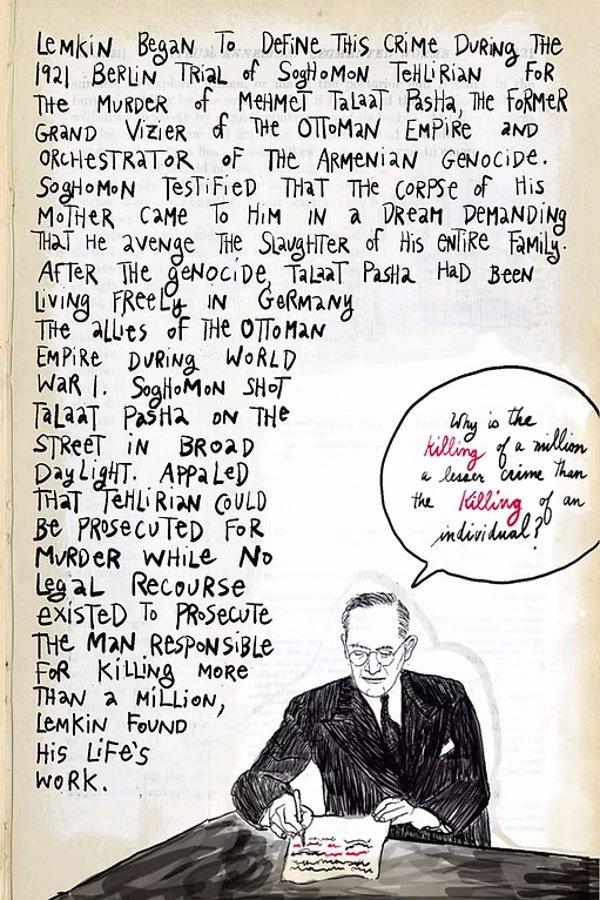 Lemkin Began To Define This Crime During The
1921 Berlin Trial of Soghomon Tehlirian for
The Murder of Mehmet Talaat Pasha, the Former
Grand Vizier of The Ottoman Empire and
Orchestrator of The Armenian Genocide.
Soghomon Testified That The Corpse of His
Mother Came To Him in a Dream Demanding
That He avenge The Slaughter of His entire Family.
After The genocide, Talaat Pasha Had Been
Living Freely in Germany
The allies of The Ottoman
Empire During World
War 1. Soghomon Shot
Talaat Pasha on The
Street in Broad
Daylight. Appaled
That Tehlirian Could
Be Prosecuted For
Murder While No
Legal Recourse
existed To Prosecute
The Man Responsible
For Killing More
Than a Million,
Lemkin Found
His Life's
Work.
Why is the
killing of a million
a lesser crime than
the killing of an
individual?